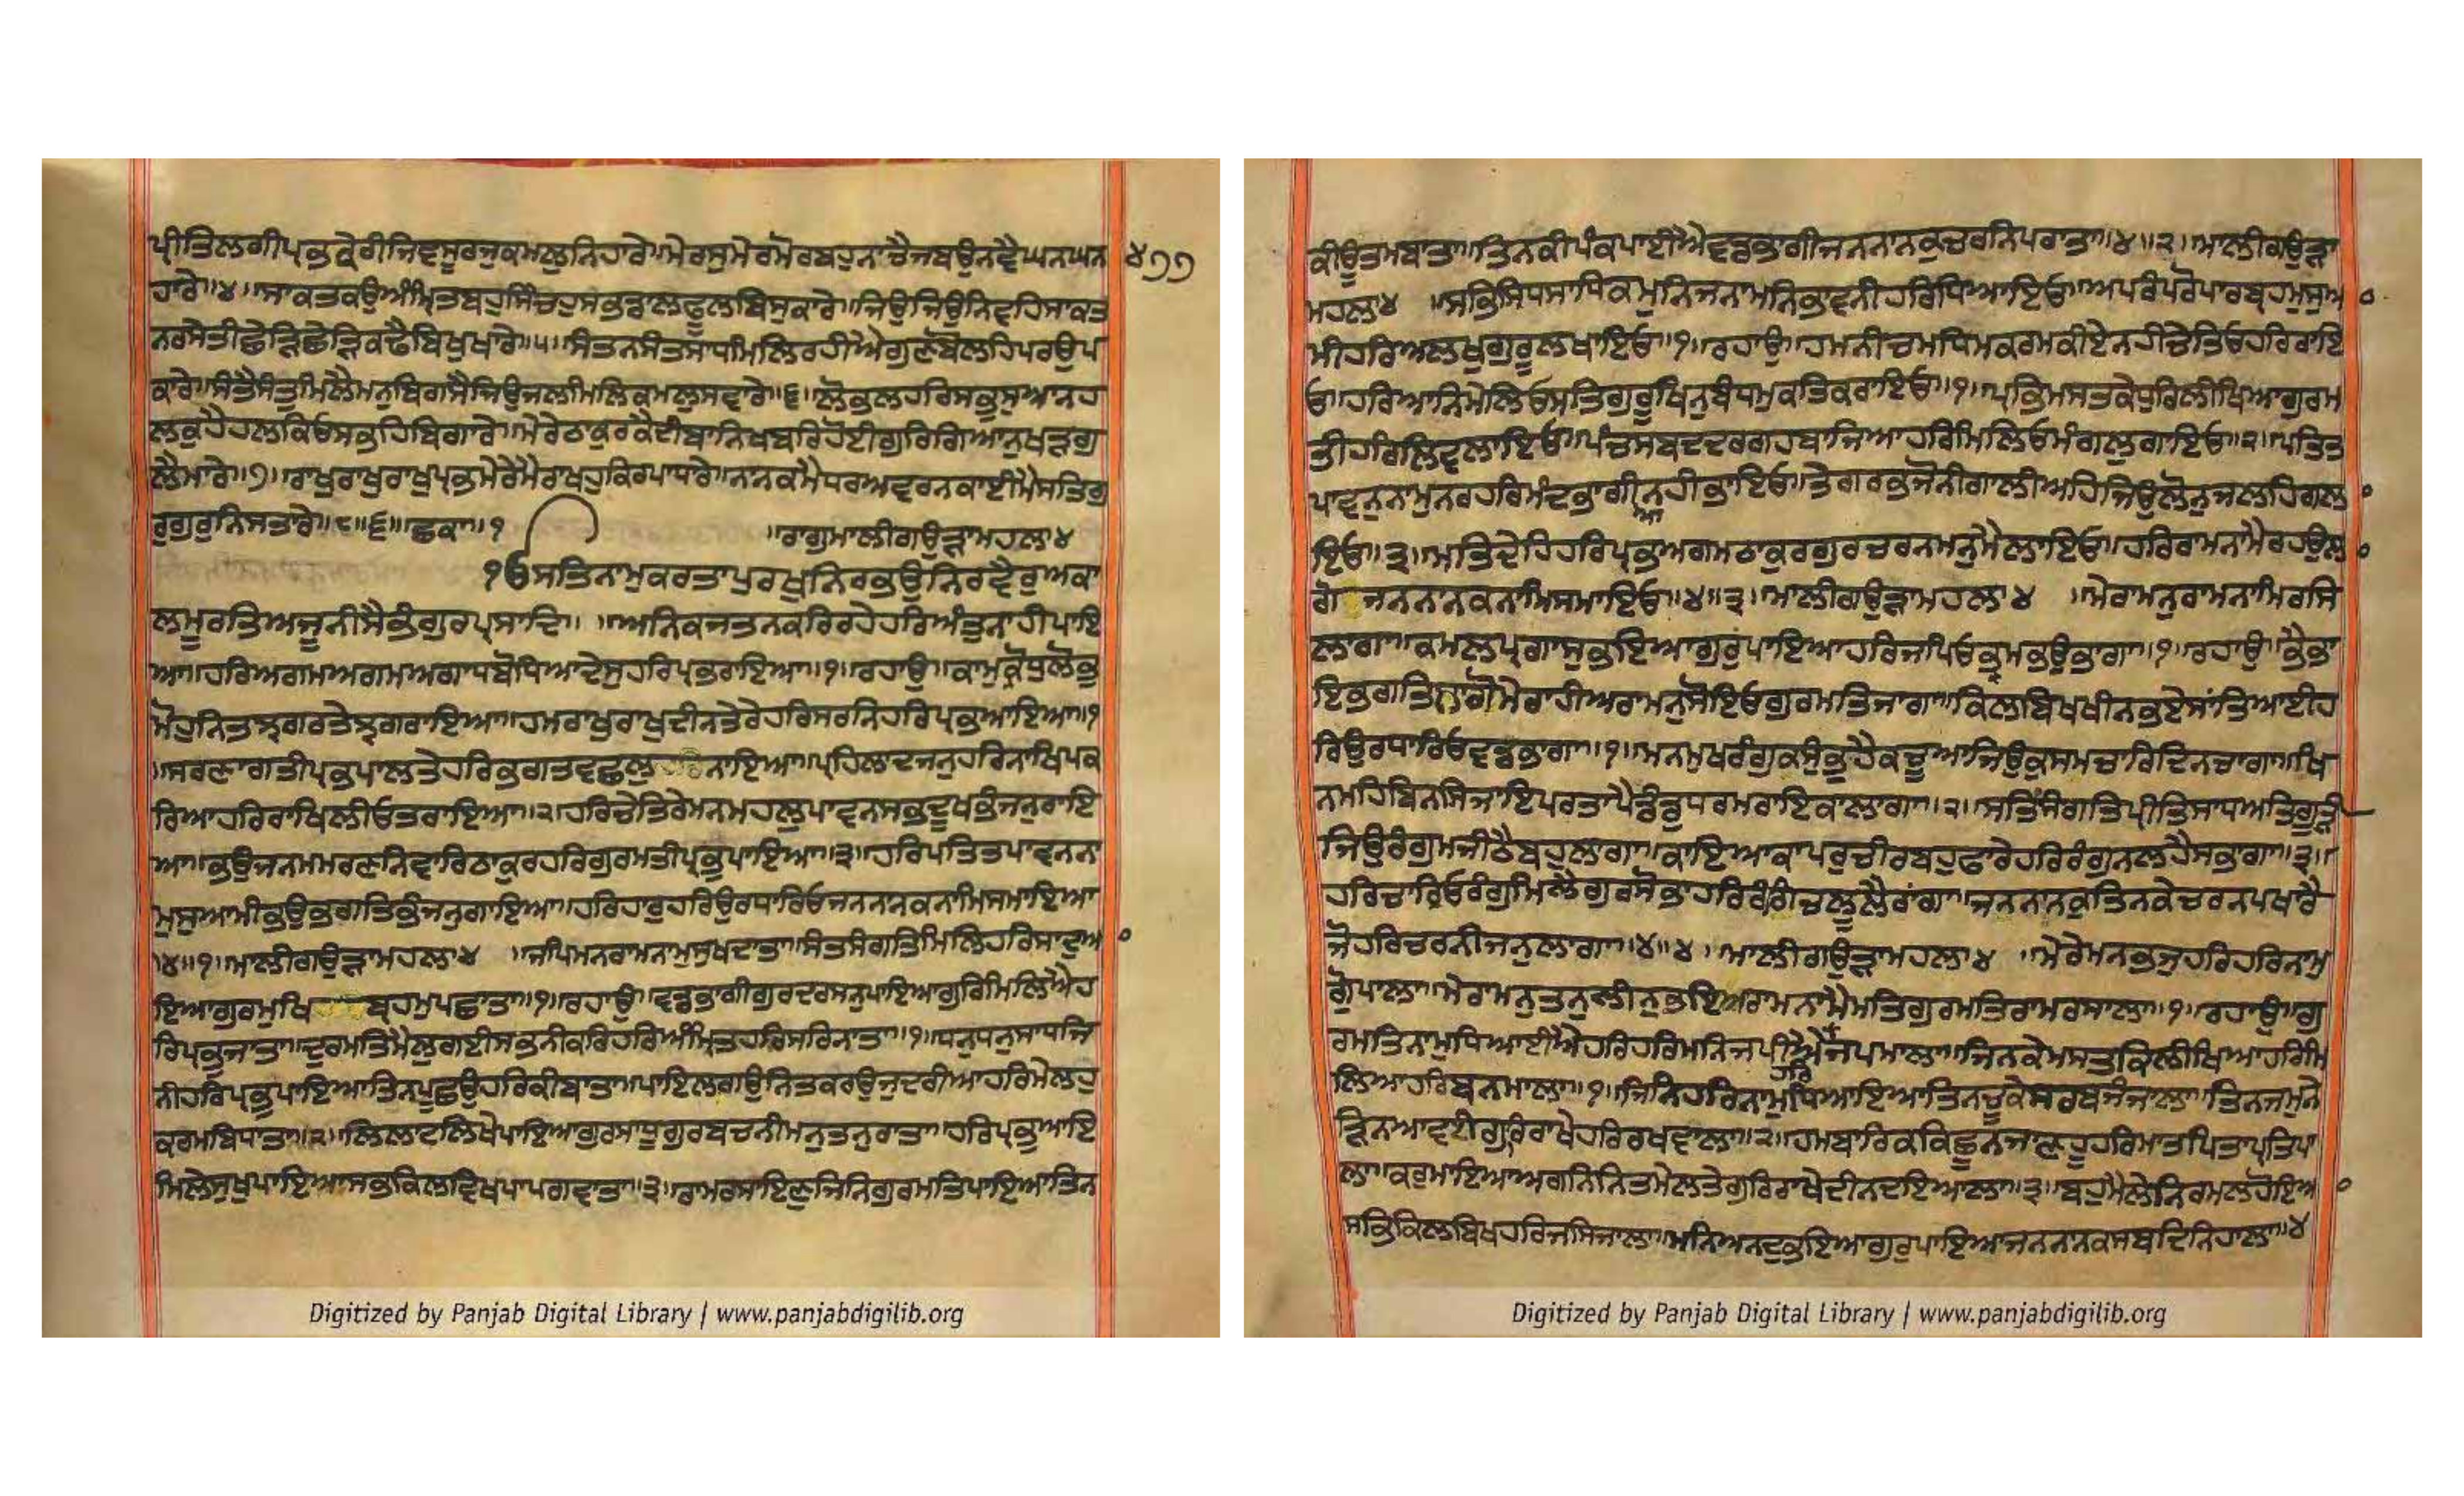 ਪ੍ਰੀਤਿਲਗੀਪ੍ਰਭਕੇਰੀਜਿਵਸੂਰਜੁਕਮਲੁਨਿਹਾਰੇ॥ਮੇਰਸੁਮੇਰਮੋਰਬਹੁਨਾਚੈਜਬਉਨਵੈਘਨਘਨ ੪੭੭
ਹਾਰੇ॥੪॥ਸਾਕਤਕਉਅੰਮ੍ਰਿਤਬਹੁਸਿੰਚਹੁਸਭਡਾਲਫੂਲਬਿਸੁਕਾਰੇ॥ਜਿਉਜਿਉਨਿਵਹਿਸਾਕਤ
ਨਰਸੇਤੀਛੇੜਿਛੇੜਿਕਢੈਬਿਖੁਖਾਰੇ॥੫॥ਸੰਤਨਸੰਤਸਾਧਮਿਲਿਰਹੀਐਗੁਣਬੋਲਹਿਪਰਉਪ
ਕਾਰੇ॥ਸੰਤੈਸੰਤੁਮਿਲੈਮਨੁਬਿਗਸੈਜਿਉਜਲਮਿਲਿਕਮਲਸਵਾਰੇ॥੬॥ਲੋਭਲਹਰਿਸਭੁਸੁਆਨਹ
ਲਕੁਹੈਹਲਕਿਓਸਭਹਿਬਿਗਾਰੇ॥ਮੇਰੇਠਾਕੁਰਕੈਦੀਬਾਨਿਖਬਰਿਹੋਈਗੁਰਿਗਿਆਨੁਖੜਗੁ
ਲੈਮਾਰੇ॥੭॥ਰਾਖੁਰਾਖੁਰਾਖੁਪ੍ਰਭਮੇਰੇਮੈਰਾਖਹੁਕਿਰਪਾਧਾਰੇ॥ਨਾਨਕਮੈਧਰਅਵਰਨਕਾਈਮੈਸਤਿਗੁ
ਰੁਗੁਰੁਨਿਸਤਾਰੇ॥੮॥੬॥ਛਕਾ॥੧ ॥ਰਾਗੁਮਾਲੀਗਉੜਾਮਹਲਾ੪
ੴਸਤਿਨਾਮੁਕਰਤਾਪੁਰਖੁਨਿਰਭਉਨਿਰਵੈਰੁਅਕਾ
ਲਮੂਰਤਿਅਜੂਨੀਸੈਭੰਗੁਰਪ੍ਰਸਾਦਿ॥ ॥ਅਨਿਕਜਤਨਕਰਿਰਹੇਹਰਿਅੰਤੁਨਾਹੀਪਾਇ
ਆ॥ਹਰਿਅਗਮਅਗਮਅਗਾਧਬੋਧਿਆਦੇਸੁਹਰਿਪ੍ਰਭਰਾਇਆ॥੧॥ਰਹਾਉ॥ਕਾਮੁਕ੍ਰੋਧੁਲੋਭੁ
ਮੋਹੁਨਿਤਝਗਰਤੇਝਗਰਾਇਆ॥ਹਮਰਾਖੁਰਾਖੁਦੀਨਤੇਰੇਹਰਿਸਰਨਿਹਰਿਪ੍ਰਭਆਇਆ॥੧
॥ਸਰਣਾਗਤੀਪ੍ਰਭਪਾਲਤੇਹਰਿਭਗਤਵਛਲੁਨਾਇਆ॥ਪ੍ਰਹਿਲਾਦਜਨੁਹਰਿਨਾਖਿਪਕ
ਰਿਆਹਰਿਰਾਖਿਲੀਓਤਰਾਇਆ॥੨॥ਹਰਿਚੇਤਿਰੇਮਨਮਹਲੁਪਾਵਨਸਭਦੂਖਭੰਜਨੁਰਾਇ
ਆ॥ਭਉਜਨਮਮਰਣਨਿਵਾਰਿਠਾਕੁਰਹਰਿਗੁਰਮਤੀਪ੍ਰਭੁਪਾਇਆ॥੩॥ਹਰਿਪਤਿਤਪਾਵਨਨਾ
ਮੁਸੁਆਮੀਭਉਭਗਤਿਭੰਜਨੁਗਾਇਆ॥ਹਰਿਹਾਰੁਹਰਿਉਰਧਾਰਿਓਜਨਨਾਨਕਨਾਮਿਸਮਾਇਆ
॥੪॥੧॥ਮਾਲੀਗਉੜਾਮਹਲਾ੪ ॥ਜਪਿਮਨਰਾਮਨਾਮੁਸੁਖਦਾਤਾ॥ਸਤਸੰਗਤਿਮਿਲਿਹਰਿਸਾਦੁਆ
ਇਆਗੁਰਮੁਖਿਬ੍ਰਹਮੁਪਛਾਤਾ॥੧॥ਰਹਾਉ॥ਵਡਭਾਗੀਗੁਰਦਰਸਨੁਪਾਇਆਗੁਰਿਮਿਲਿਐਹ
ਰਿਪ੍ਰਭੁਜਾਤਾ॥ਦੁਰਮਤਿਮੈਲੁਗਈਸਭਨੀਕਰਿਹਰਿਅੰਮ੍ਰਿਤਹਰਿਸਰਿਨਾਤਾ॥੧॥ਧਨੁਧਨੁਸਾਧਜਿ
ਨੀਹਰਿਪ੍ਰਭੁਪਾਇਆਤਿਨਪੂਛਉਹਰਿਕੀਬਾਤਾ॥ਪਾਇਲਗਉਨਿਤਕਰਉਜੁਦਰੀਆਹਰਿਮੇਲਹੁ
ਕਰਮਬਿਧਾਤਾ॥੨॥ਲਿਲਾਟਲਿਖੇਪਾਇਆਗੁਰਸਾਧੁਗੁਰਬਚਨੀਮਨੁਤਨੁਰਾਤਾ॥ਹਰਿਪ੍ਰਭੁਆਇ
ਮਿਲੇਸੁਖੁਪਾਇਆਸਭਕਿਲਵਿਖਪਾਪਗਵਾਤਾ॥੩॥ਰਾਮਰਸਾਇਣੁਜਿਨਿਗੁਰਮਤਿਪਾਇਆਤਿਨ
ਕੀਊਤਮਬਾਤਾ॥ਤਿਨਕੀਪੰਕਪਾਈਐਵਡਭਾਗੀਜਨਨਾਨਕੁਚਰਨਿਪਰਾਤਾ॥੪॥੨॥ਮਾਲੀਗਉੜਾ
ਮਹਲਾ੪ ॥ਸਭਿਸਿਧਸਾਧਿਕਮੁਨਿਜਨਾਮਨਿਭਾਵਨੀਹਰਿਧਿਆਇਓ॥ਅਪਰੰਪਰੋਪਾਰਬ੍ਰਹਮੁਸੁਆ
ਮੀਹਰਿਅਲਖੁਗੁਰੂਲਖਾਇਓ॥੧॥ਰਹਾਉ॥ਹਮਨੀਚਮਧਿਮਕਰਮਕੀਏਨਹੀਚੇਤਿਓਹਰਿਰਾਇ
ਓ॥ਹਰਿਆਨਿਮੇਲਿਓਸਤਿਗੁਰੂਖਿਨੁਬੰਧਮੁਕਤਿਕਰਾਇਓ॥੧॥ਪ੍ਰਭਿਮਸਤਕੇਧੁਰਿਲੀਖਿਆਗੁਰਮ
ਤੀਹਰਿਲਿਵਲਾਇਓ॥ਪੰਚਸਬਦਦਰਗਹਬਾਜਿਆਹਰਿਮਿਲਿਓਮੰਗਲੁਗਾਇਓ॥੨॥ਪਤਿਤ
ਪਾਵਨੁਨਾਮੁਨਰਹਰਿਮੰਦਭਾਗੀਆਂਨਹੀਭਾਇਓ॥ਤੇਗਰਭਜੋਨੀਗਾਲੀਅਹਿਜਿਉਲੋਨੁਜਲਹਿਗਲਾ
ਇਓ॥੩॥ਮਤਿਦੇਹਿਹਰਿਪ੍ਰਭਅਗਮਠਾਕੁਰਗੁਰਚਰਨਮਨੁਮੈਲਾਇਓ॥ਹਰਿਰਾਮਨਾਮੈਰਹਉਲਾ
ਗੋਜਨਨਾਨਕਨਾਮਿਸਮਾਇਓ॥੪॥੩॥ਮਾਲੀਗਉੜਾਮਹਲਾ੪ ॥ਮੇਰਾਮਨੁਰਾਮਨਾਮਿਰਸਿ
ਲਾਗਾ॥ਕਮਲਪ੍ਰਗਾਸੁਭਇਆਗੁਰੁਪਾਇਆਹਰਿਜਪਿਓਭ੍ਰਮੁਭਉਭਾਗਾ॥੧॥ਰਹਾਉ॥ਭੈਭਾ
ਇਭਗਤਿਲਾਗੋਮੇਰਾਹੀਅਰਾਮਨੁਸੋਇਓਗੁਰਮਤਿਜਾਗਾ॥ਕਿਲਬਿਖਖੀਨਭਏਸਾਂਤਿਆਈਹ
ਰਿਉਰਧਾਰਿਓਵਡਭਾਗਾ॥੧॥ਮਨਮੁਖਰੰਗੁਕਸੁੰਭੁਹੈਕਚੂਆਜਿਉਕੁਸਮਚਾਰਿਦਿਨਚਾਗਾ॥ਖਿ
ਨਮਹਿਬਿਨਸਿਜਾਇਪਰਤਾਪੈਡੰਡੁਧਰਮਰਾਇਕਾਲਾਗਾ॥੨॥ਸਤਸੰਗਤਿਪ੍ਰੀਤਿਸਾਧਅਤਿਗੂੜੀ
ਜਿਉਰੰਗੁਮਜੀਠੈਬਹੁਲਾਗਾ॥ਕਾਇਆਕਾਪਰੁਚੀਰਬਹੁਫਾਰੇਹਰਿਰੰਗੁਨਲਹੈਸਭਾਗਾ॥੩॥
ਹਰਿਚਾਰ੍ਹਿਓਰੰਗੁਮਿਲੈਗੁਰਸੋਭਾਹਰਿਰੰਗਿਚਲੂਲੈਰਾਂਗਾ॥ਜਨਨਾਨਕੁਤਿਨਕੇਚਰਨਪਖਾਰੈ
ਜੋਹਰਿਚਰਨੀਜਨੁਲਾਗਾ॥੪॥੪॥ਮਾਲੀਗਉੜਾਮਹਲਾ੪ ॥ਮੇਰੇਮਨਭਜੁਹਰਿਹਰਿਨਾਮੁ
ਗੋੁਪਾਲਾ॥ਮੇਰਾਮਨੁਤਨੁਲੀਨੁਭਇਆਰਾਮਨਾਮੈਮਤਿਗੁਰਮਤਿਰਾਮਰਸਾਲਾ॥੧॥ਰਹਾਉ॥ਗੁ
ਰਮਤਿਨਾਮੁਧਿਆਈਐਹਰਿਹਰਿਮਨਿਜਪੀਐਜਪਮਾਲਾ॥ਜਿਨਕੇਮਸਤਕਿਲੀਖਿਆਹਰਿਮਿ
ਲਿਆਹਰਿਬਨਮਾਲਾ॥੧॥ਜਿਨਿਹਰਿਨਾਮੁਧਿਆਇਆਤਿਨਚੂਕੇਸਰਬਜੰਜਾਲਾ॥ਤਿਨਜਮੁਨੇ
ੜਿਨਆਵਈਗੁਰਿਰਾਖੇਹਰਿਰਖਵਾਲਾ॥੨॥ਹਮਬਾਰਿਕਕਿਛੂਨਜਾਣਹੂਹਰਿਮਾਤਪਿਤਾਪ੍ਰਤਿਪਾ
ਲਾ॥ਕਰੁਮਾਇਆਅਗਨਿਨਿਤਮੇਲਤੇਗੁਰਿਰਾਖੇਦੀਨਦਇਆਲਾ॥੩॥ਬਹੁਮੈਲੇਨਿਰਮਲਹੋਇਆ
ਸਭਿਕਿਲਬਿਖਹਰਿਜਸਿਜਾਲਾ॥ਮਨਿਅਨਦੁਭਇਆਗੁਰੁਪਾਇਆਜਨਨਾਨਕਸਬਦਿਨਿਹਾਲਾ॥੪
Digitized by Panjab Digital Library | www.panjabdigilib.org
Digitized by Panjab Digital Library | www.panjabdigilib.org